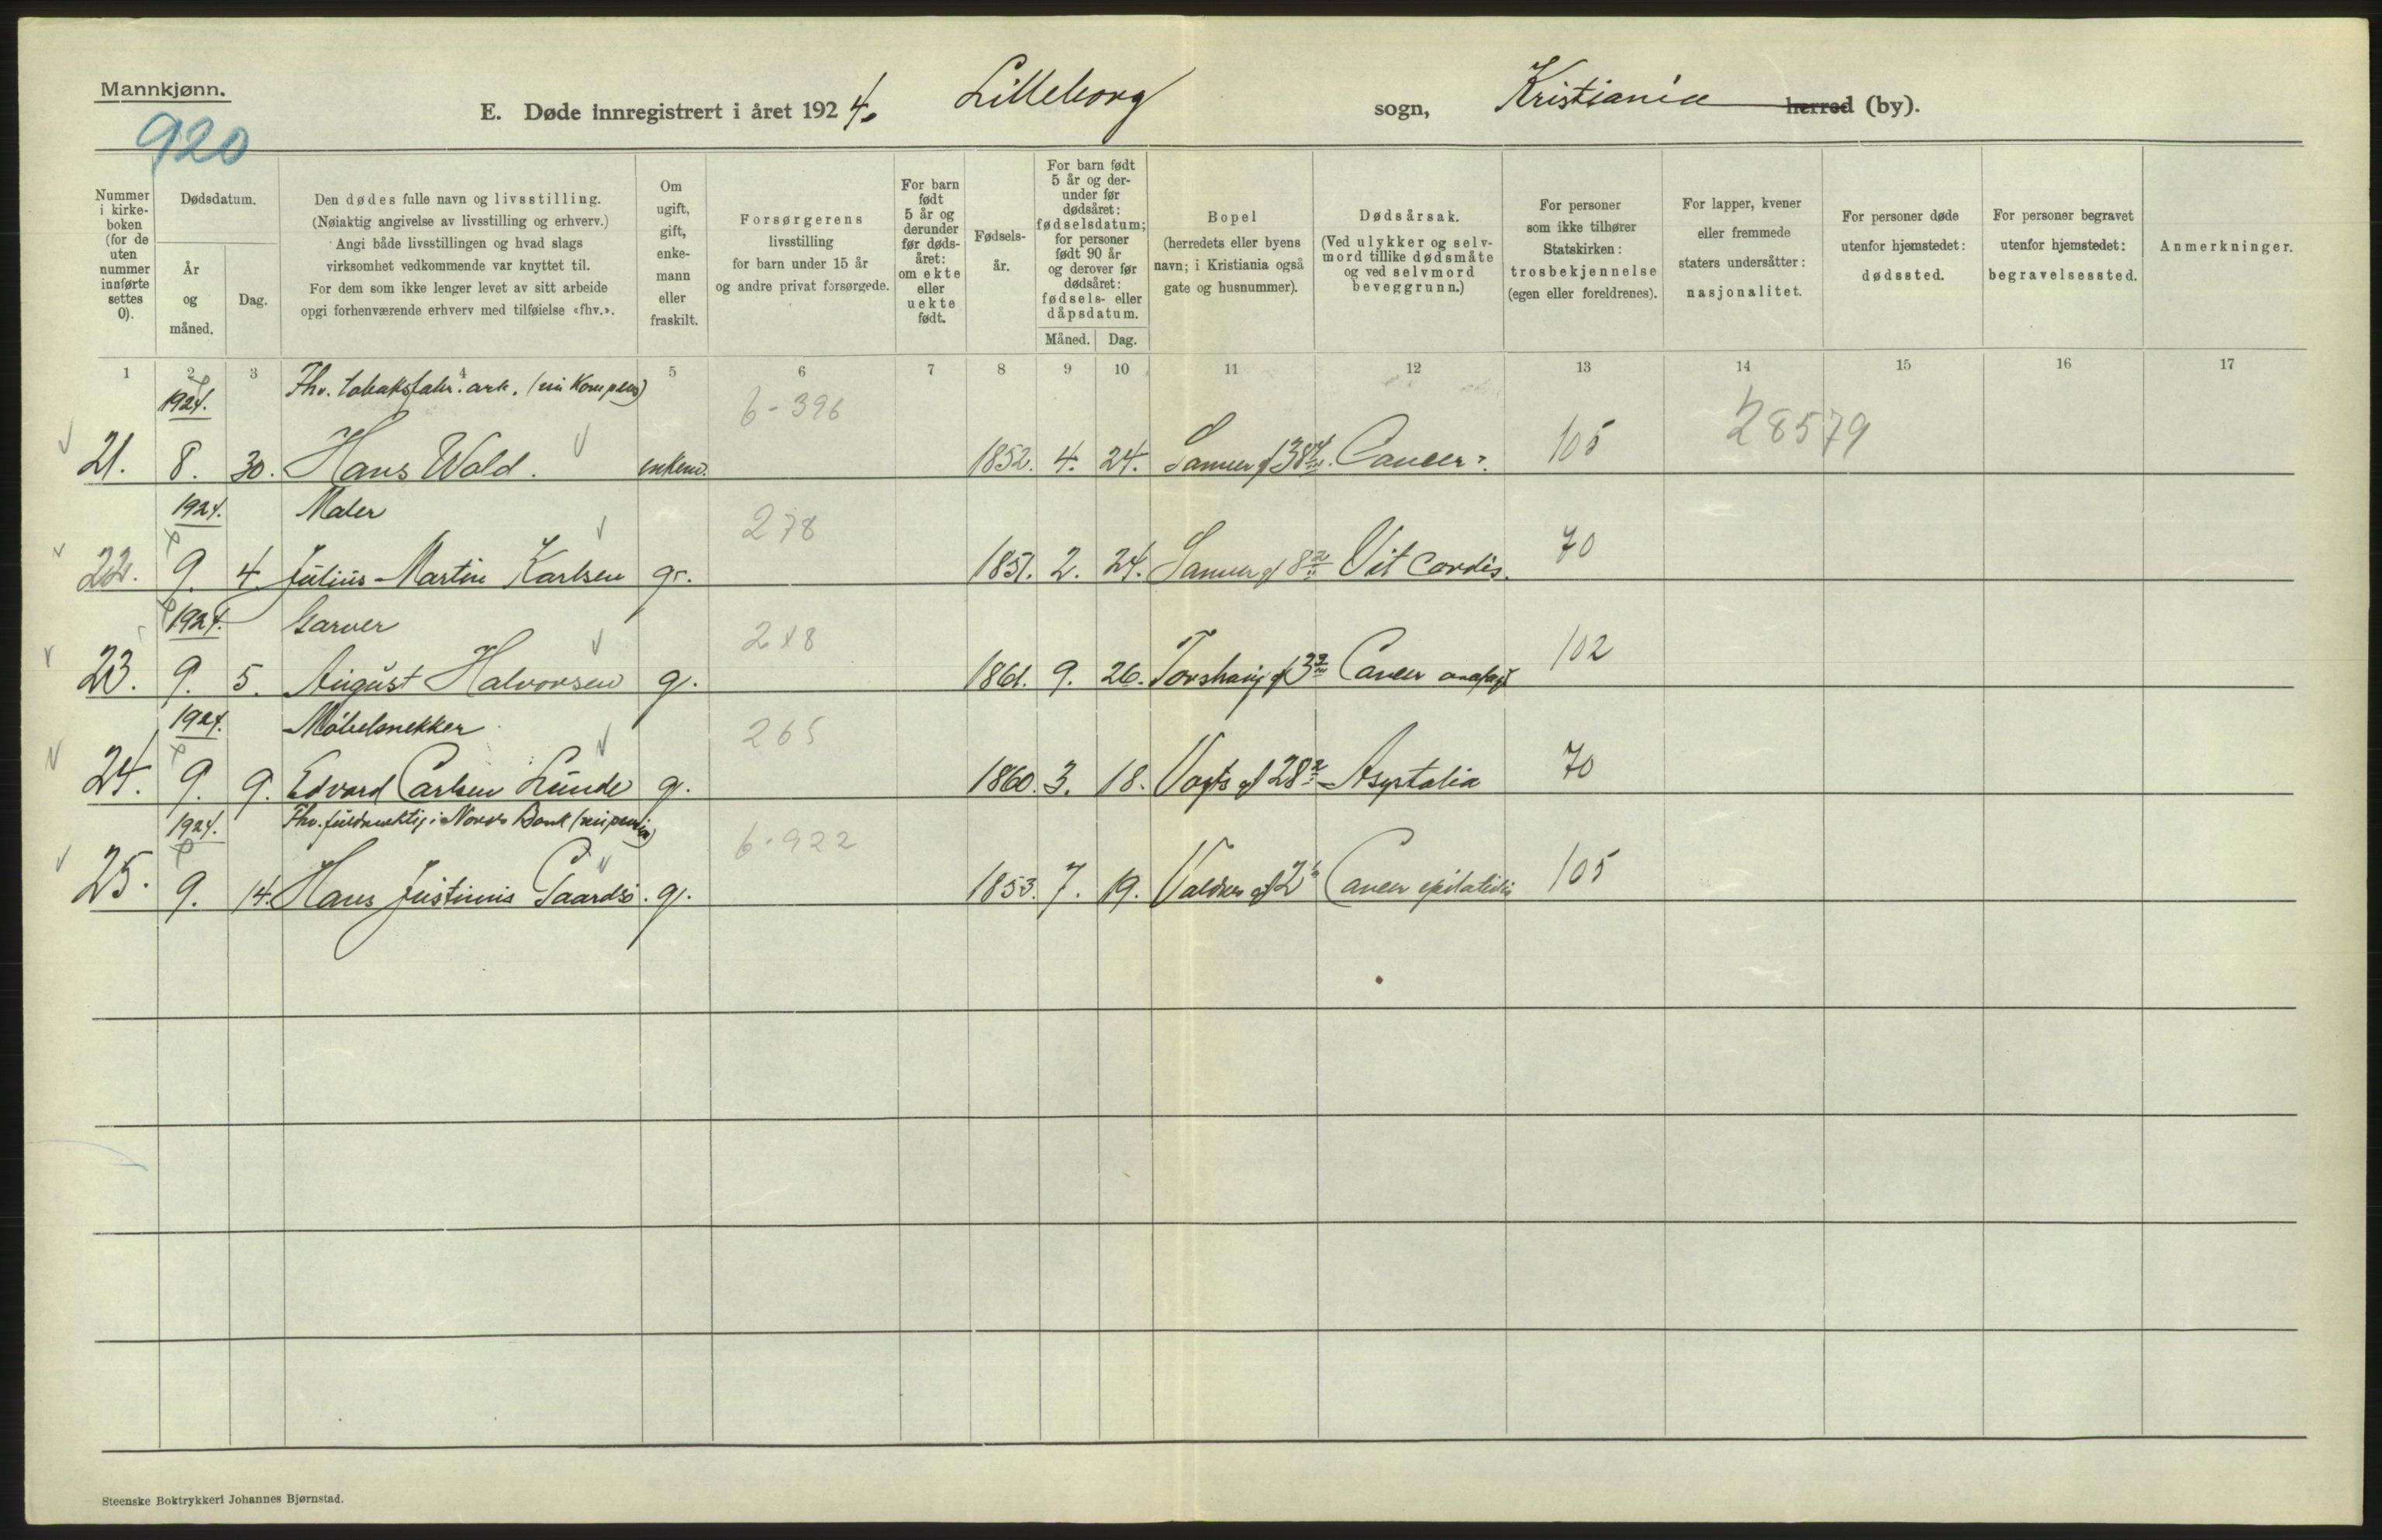 Mannkjønn.
920
E. Døde innregistrert i året 1924. Lilleborg sogn, Kristiania herred (by).
Nummer i kirkeboken (for de uten nummer innførte settes 0).
Dødsdatum.
År og måned.
Dag.
Den dødes fulle navn og livsstilling.
(Nøiaktig angivelse av livsstilling og erhverv.)
Angi både livsstillingen og hvad slags
virksomhet vedkommende var knyttet til.
For dem som ikke lenger levet av sitt arbeide
opgi forhenværende erhverv med tilføielse «fhv.».
Om ugift, gift, enkemann eller fraskilt.
Forsørgerens
livsstilling
for barn under 15 år
og andre privat forsørgede.
For barn født 5 år og derunder før dødsåret: om ekte eller uekte født.
Fødselsår.
For barn født 5 år og derunder før dødsåret: fødselsdatum; for personer født 90 år og derover før dødsåret: fødsels- eller dåpsdatum.
Måned.
Dag.
Bopel
(herredets eller byens
navn; i Kristiania også
gate og husnummer).
Dødsårsak.
(Ved ulykker og selvmord tillike dødsmåte og ved selvmord beveggrunn.)
For personer
som ikke tilhører
Statskirken:
trosbekjennelse
(egen eller foreldrenes).
For lapper, kvener
eller fremmede
staters undersåtter:
nasjonalitet.
For personer døde
utenfor hjemstedet:
dødssted.
For personer begravet
utenfor hjemstedet:
begravelsessted.
Anmerkninger.
1 2 3 4 5 6 7 8 9 10 11 12 13 14 15 16 17
1924. Fhv. tobaksfabr. arb. 6-396 28579
21. 8. 30. Hans Wold. enkem. 1852. 4. 24. Cancer 105
1924. Maler 278
22. 9. 4. Julius Martin Karlsen g. 1851. 2. 24. Vit cordis. 70
1924. Garver 248
23. 9. 5. August Halvorsen g. 1861. 9. 26. Torshaug gt 3 Cancer 102
1924. Møbelsnekker 265
24. 9. 9. Edvard Carlsen Lunde g. 1860. 3. 18. Vogts gt 28 70
1924. Fhv. fuldmektig i Norges Bank 6-922
25. 9. 14. Hans Justinius g. 1853. 7. 19. Valdres gt 2 Cancer 105
Steenske Boktrykkeri Johannes Bjørnstad.